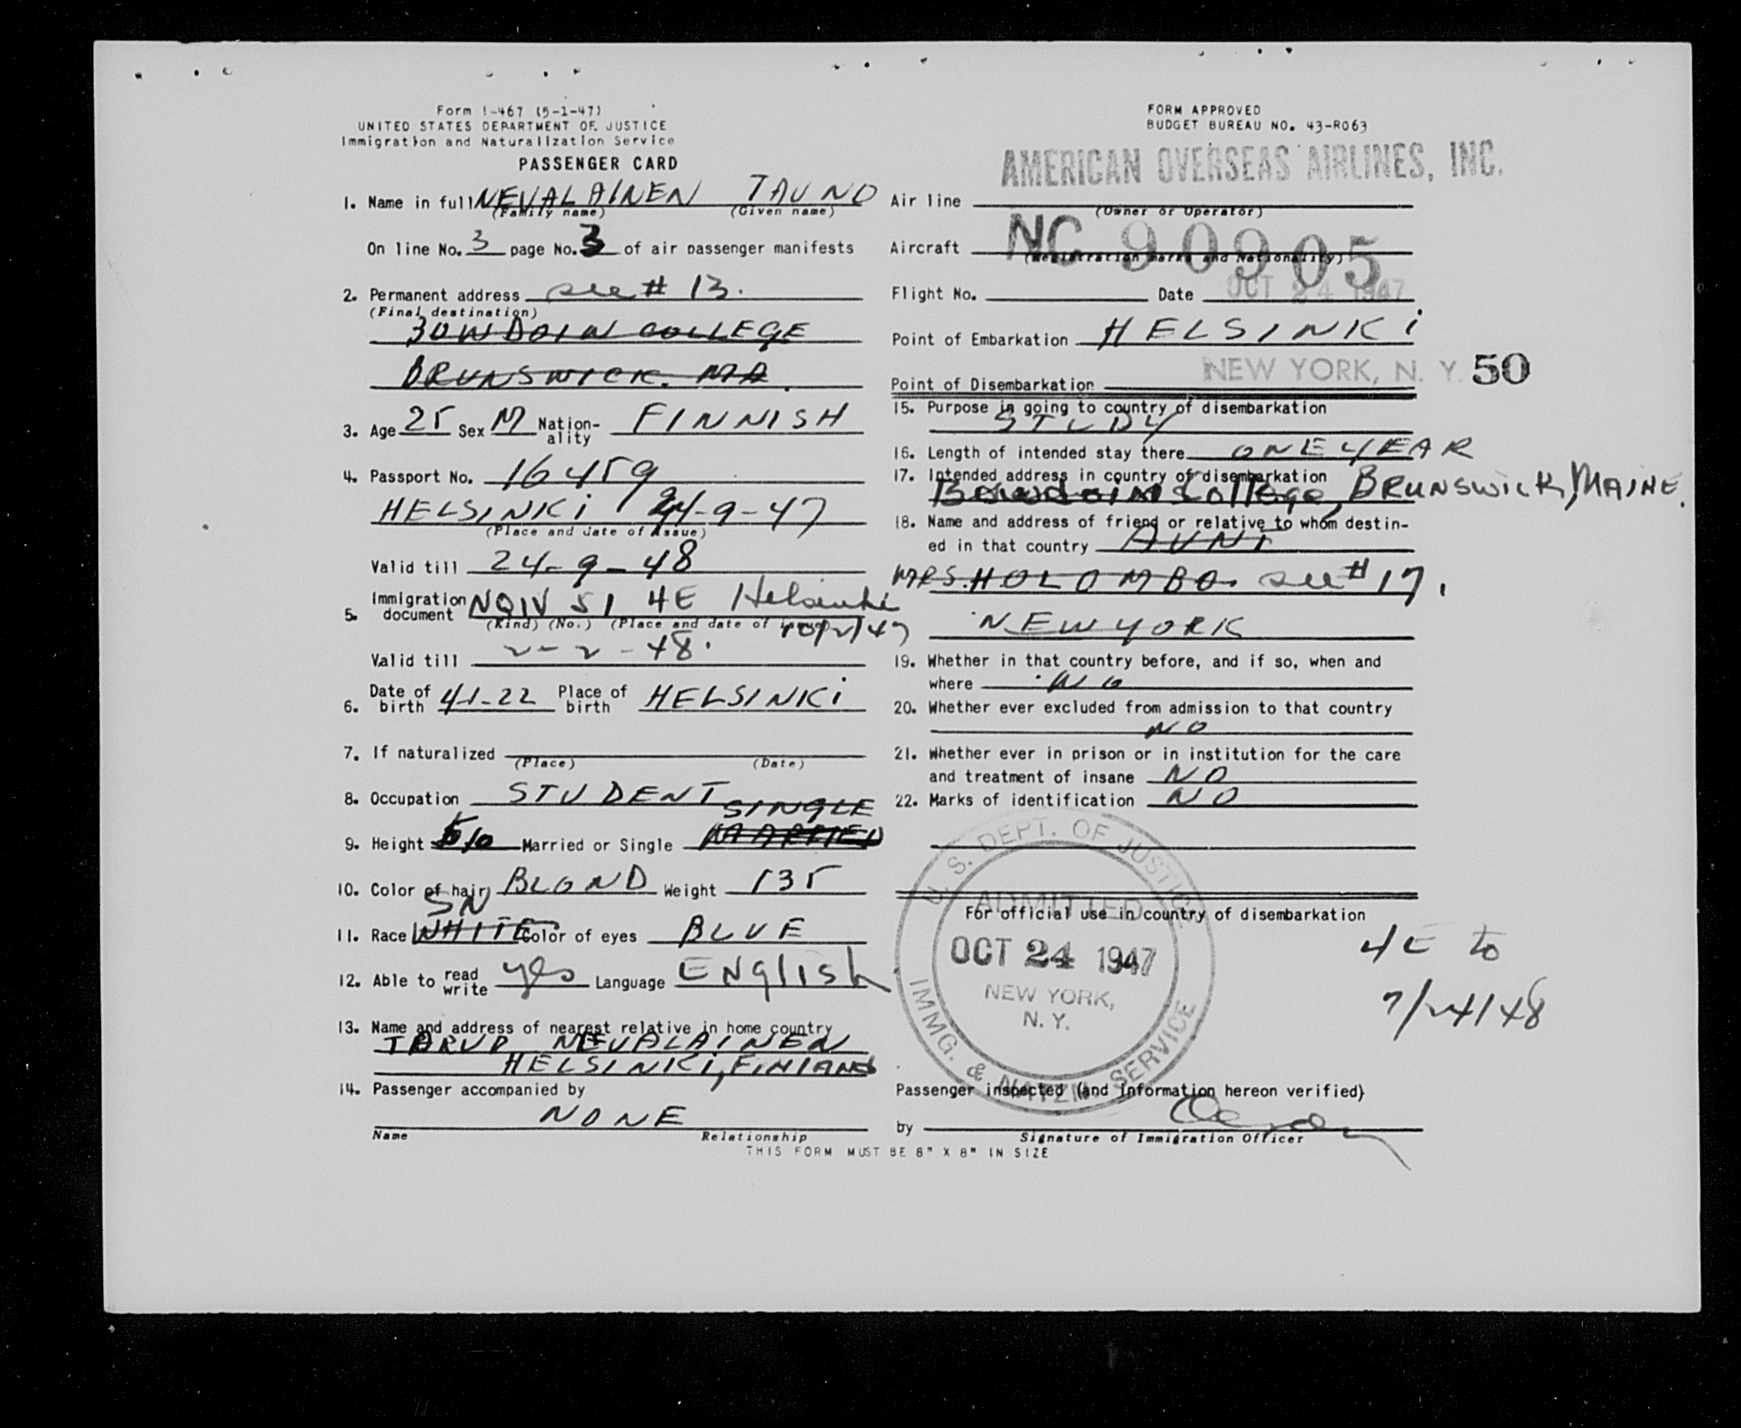 Form I-467 (5-1-47)
UNITED STATES DEPARTMENT OF JUSTICE
Immigration and Naturalization Service
PASSENGER CARD
1. Name in full NEVALAINEN TAUNO
(Family name) (Given name)
On line No. 3 page No. 3 of air passenger manifests
2. Permanent address see # 13.
(Final destination)
BOWDOIN COLLEGE
BRUNSWICK. MA.
3. Age 25 Sex M Nation-ality FINNISH
4. Passport No. 16459
HELSINKI 24-9-47
(Place and date of issue)
Valid till 24-9-48
5. Immigration document NQIV 51 4E Helsinki
(Kind) (No.) (Place and date of issue) 10/2/47
Valid till 2-2-48.
6. Date of birth 4-1-22 Place of birth HELSINKI
7. If naturalized
(Place) (Date)
8. Occupation STUDENT
SINGLE
9. Height 5/10 Married or Single MARRIED
10. Color of hair BLOND Weight 135
SN
11. Race WHITE Color of eyes BLUE
12. Able to read write yes Language ENglish
13. Name and address of nearest relative in home country
NEVALAINEN
HELSINKI, FINLAND
14. Passenger accompanied by
NONE
Name Relationship
FORM APPROVED
BUDGET BUREAU NO. 43-R063
AMERICAN OVERSEAS AIRLINES, INC.
Air line
(Owner or Operator)
Aircraft NC 90905
(Registration marks and Nationality)
Flight No. Date OCT 24 1947
Point of Embarkation HELSINKI
Point of Disembarkation NEW YORK, N. Y. 50
15. Purpose in going to country of disembarkation
STUDY
16. Length of intended stay there ONE YEAR
17. Intended address in country of disembarkation
Bowdoin College, BRUNSWICK, MAINE.
18. Name and address of friend or relative to whom destin-
ed in that country AUNT
MRS. HOLOMBO. see # 17.
NEW YORK
19. Whether in that country before, and if so, when and
where NO
20. Whether ever excluded from admission to that country
NO
21. Whether ever in prison or in institution for the care
and treatment of insane NO
22. Marks of identification NO
U. S. DEPT. OF JUSTICE
ADMITTED
For official use in country of disembarkation
OCT 24 1947
NEW YORK,
N. Y.
IMMG. & NATZN. SERVICE
4E to
7/24/48
Passenger inspected (and information hereon verified)
by
Signature of Immigration Officer
THIS FORM MUST BE 8" X 8" IN SIZE